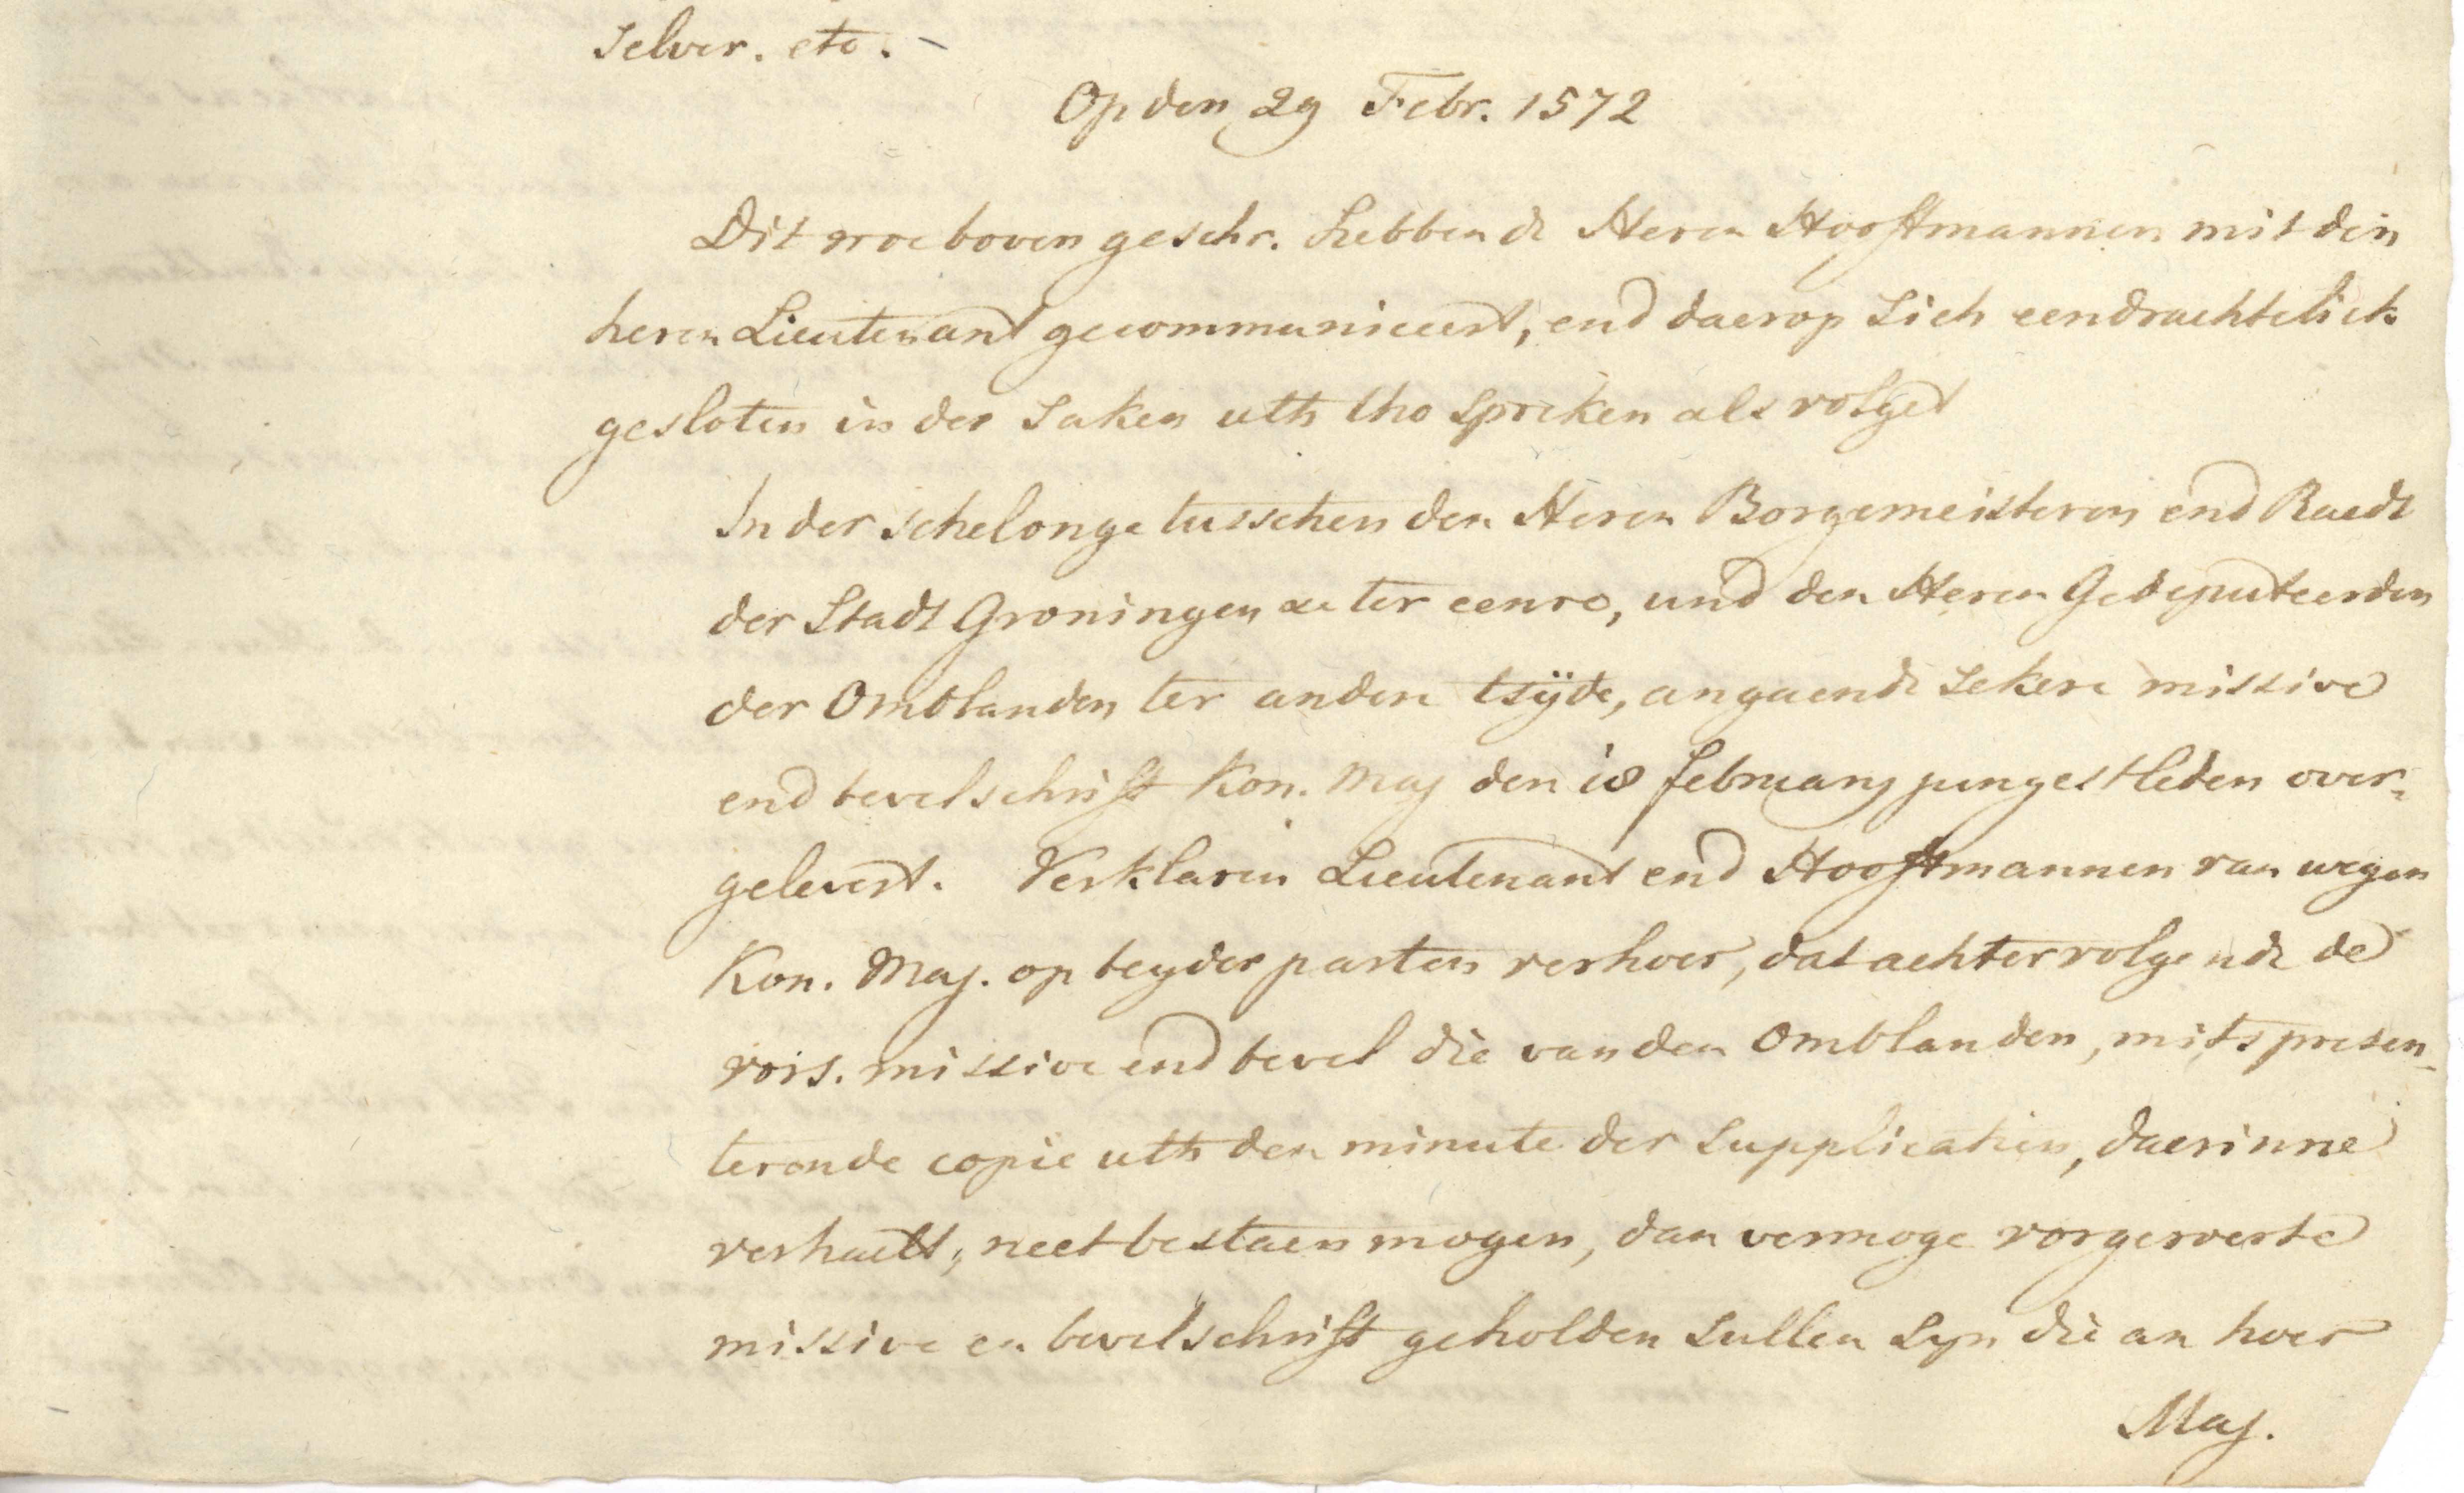 Selver. etc. -
Op den 29 Febr. 1572
Dit woe boven geschr. hebben de Heren Hooftmannen mit den
heren Lieutenant gecommuniceert, end daerop sich eendrachtelick
gesloten in der saken uth tho spreken als volget
In der schelonge tusschen den Heren Borgemeisteren end Raedt
der Stadt Groningen ter eenre, und den Heren Gedeputeerden
der Omblanden ter andere tsÿde, angaende sekere missive
end bevelschrift Kon. Maj den 18 february jungestleden over-
gelevert. Verklaren Lieutenant end Hooftmannen van wegen
Kon. Maj. op beyder parten verhoer, dat achtervolgende de
vors. missive end bevel die van den Omblanden, mits presen-
terende copie uth den minute der supplicatien, daerinne
verhaelt, neet bestaen mogen, dan vermoge vorgerverte
missive en bevelschrift geholden sullen syn die an hoer
Maj.